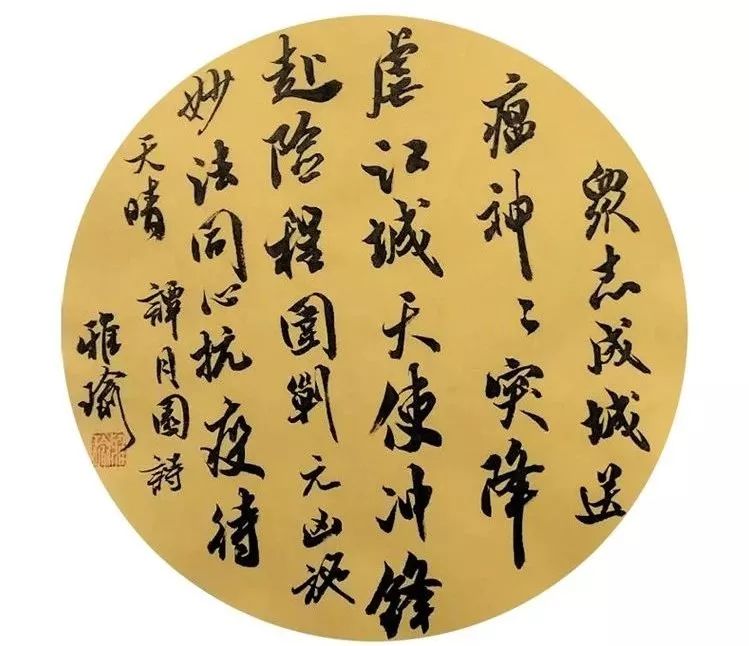 眾志成城送
瘟神〻突降
虐江城天使冲鋒
赴險程圍剿元凶施
妙法同心抗疫待
天晴 譚月園詩
雅瑜